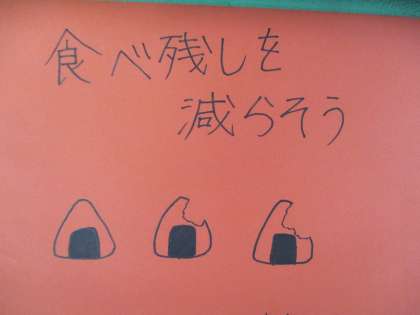 食べ残しを
減らそう